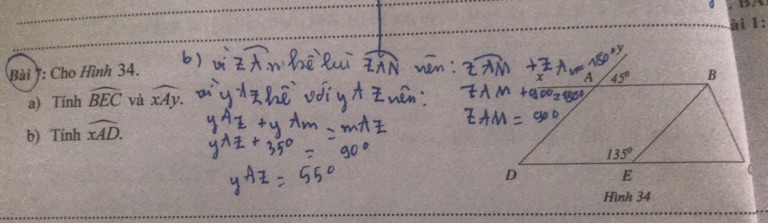 ài 1:
Bài 7: Cho Hình 34.
a) Tính BEC và xAy.
b) Tính xAD.
b) vì zAn kề bù zAN nên: zAM + zAn = 180°
vì yAz kề với yAz nên:
zAM + 90° = 180°
yAz + yAm = mAz
zAM = 90°
yAz + 35° = 90°
yAz = 55°
x A 45° y B
135°
D E
Hình 34